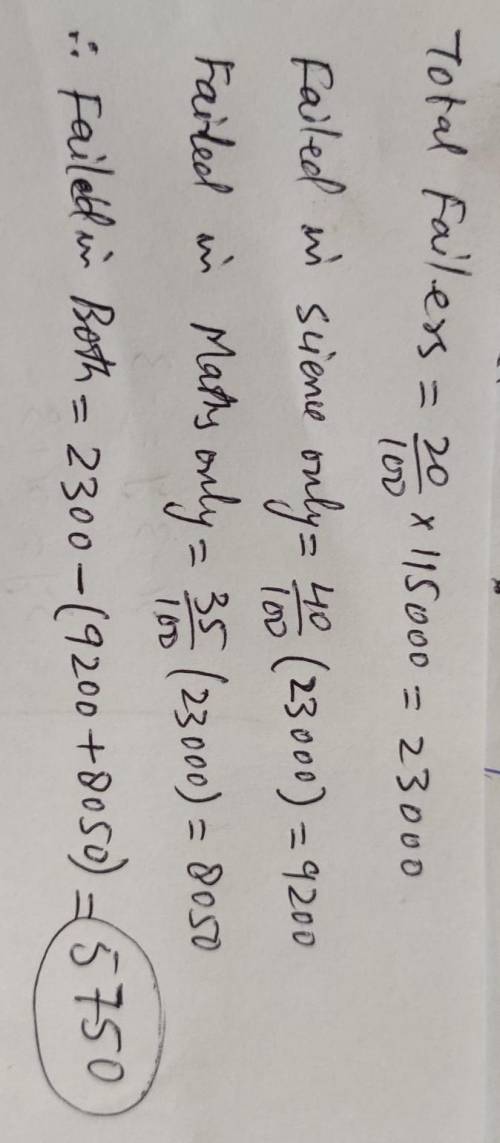 Total Failers = 20/100 × 115000 = 23000
Failed in science only = 40/100 (23000) = 9200
Failed in Maths only = 35/100 (23000) = 8050
∴ Failed in Both = 2300 - (9200 + 8050) = 5750